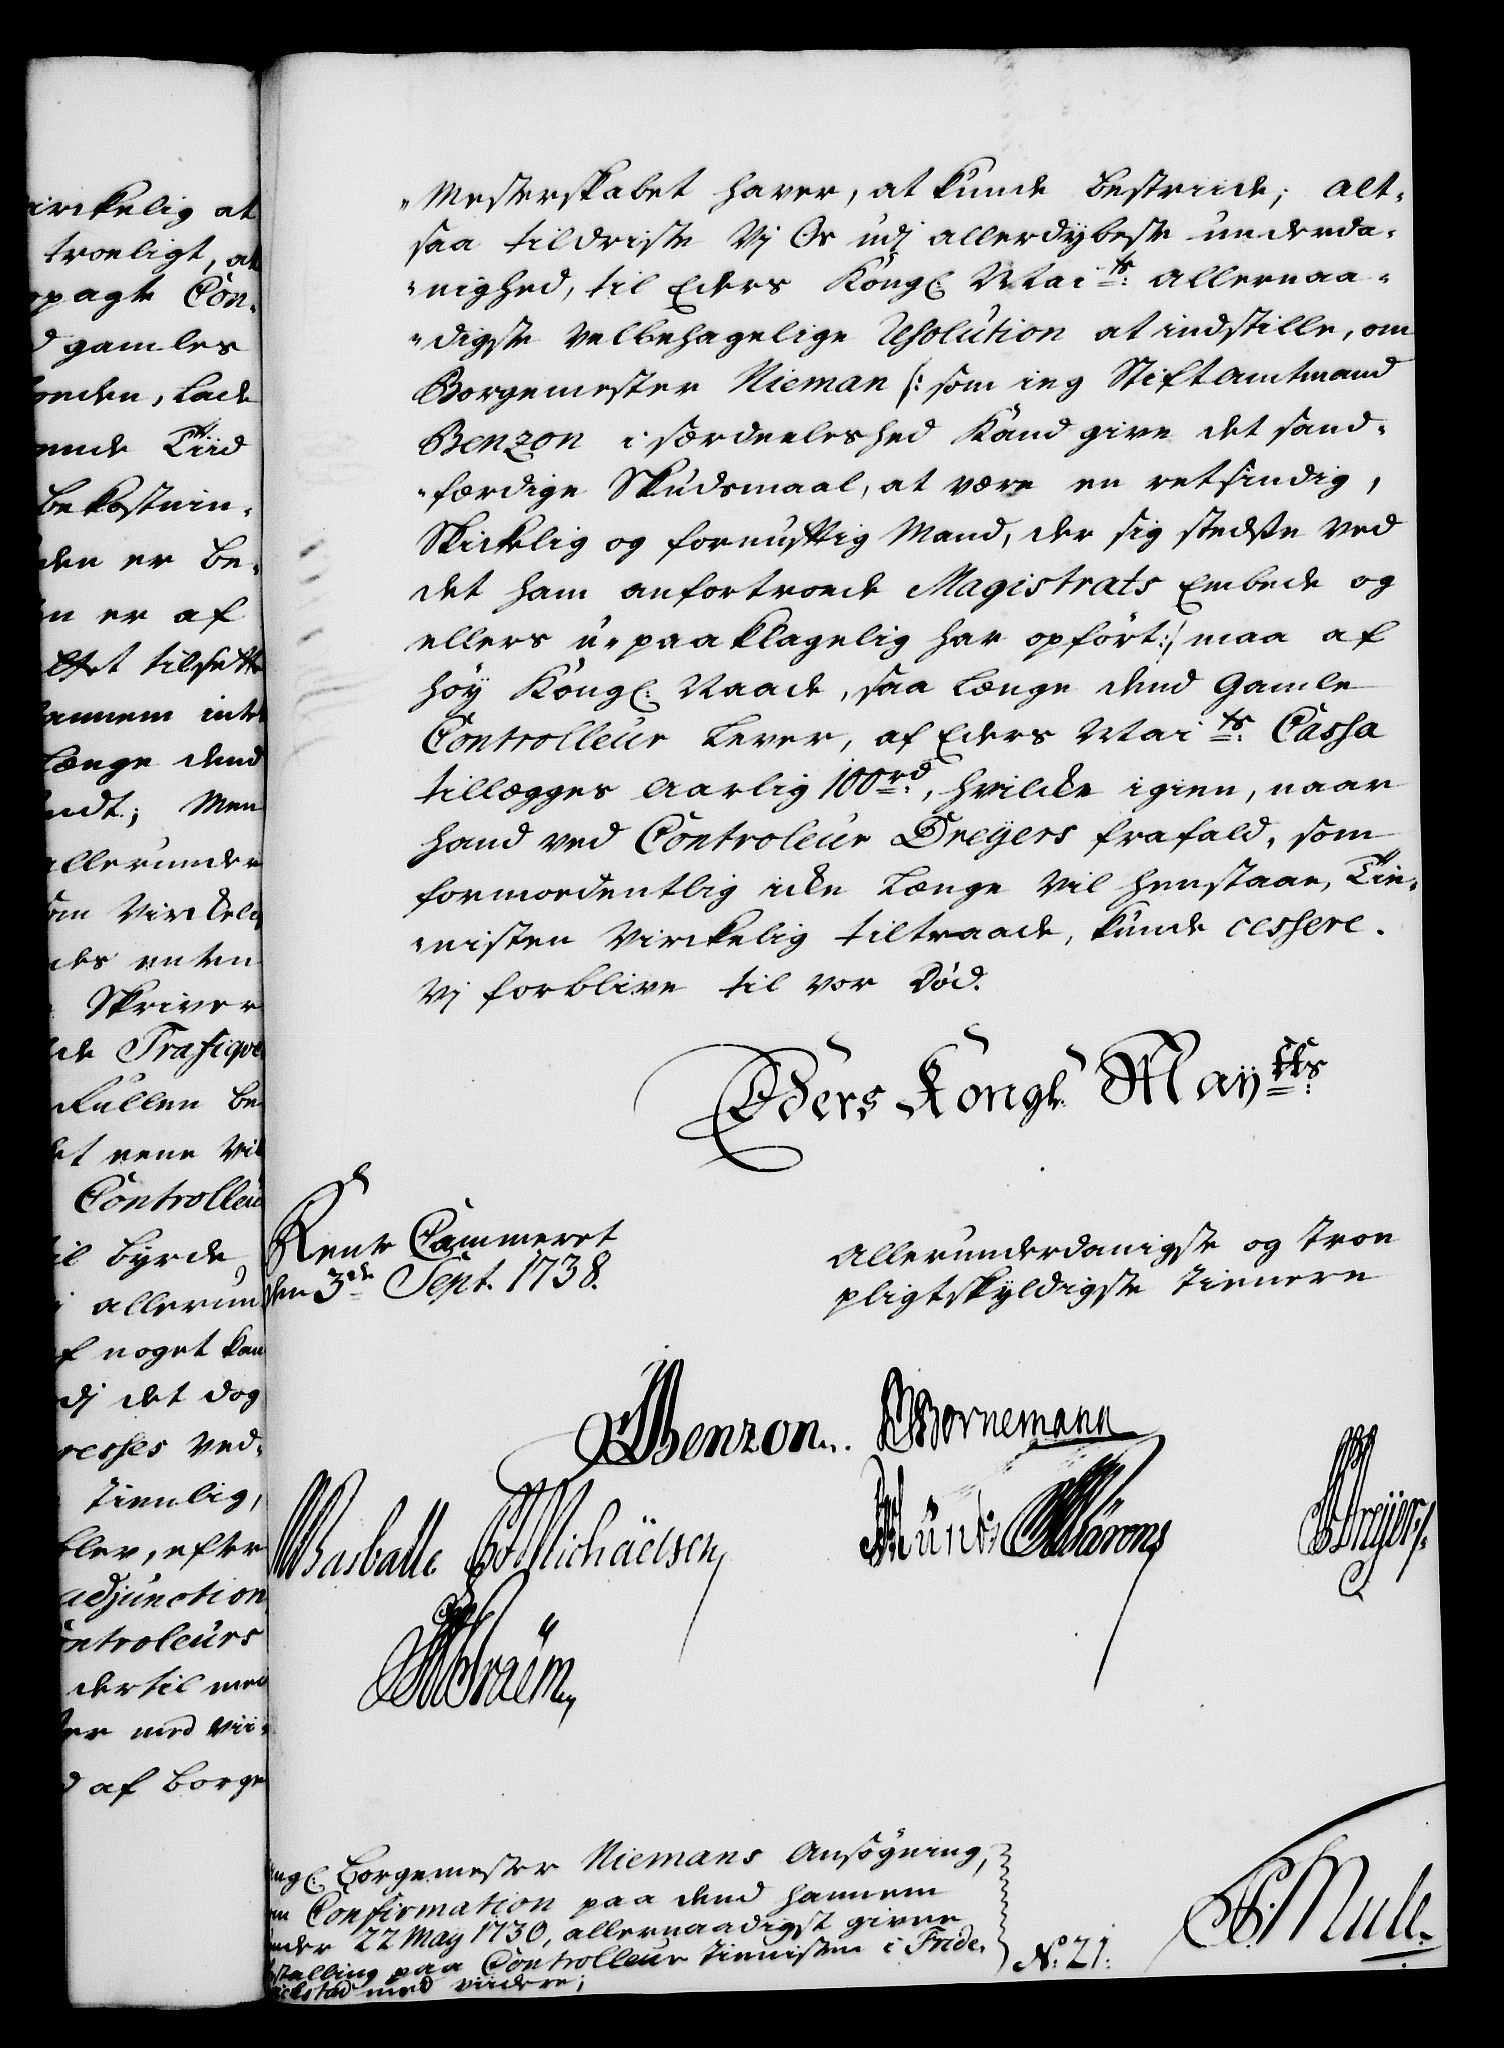 irckelig at
troeligt, at
opagte Con-
d gamles
, Lade
ende Tiid
bekostnin-
den er be-
n er af
tilsætte
hannem intet
Længe dend
; Men
allerunder
Virckelig
des enten
Skriver
de Trafique
Rullen be
et eene vil
Controlleur
il byrde
allerun
f noget kan
dj det dog
resses ved-
tienlig,
blev, efter
adjunction
Controleurs
dertil med
er med vii-
d af borge
"Mesterskabet haver, at kunde bestriide; alt-
saa tildriste Vj Os udj allerdybeste underda-
"nighed, til Eders Kongl: Maits: allernaa-
"digste velbehagelige Resolution at indstille, om
Borgemester Nieman /: som ieg Stiftamtmand
Benzon i særdeeleshed Kand give det sand-
"færdige Skudsmaal, at være en retsindig,
Skickelig og fornufftig Mand, der sig stedse ved
det ham anfortroede Magistrats Embede og
ellers u-paaklagelig har opført :/ maa af
høy Kongl: Naade, saa længe dend Gamle
Controlleur Lever, af Eders Maits: Cassa
tillægges Aarlig 100rd:, hvilcke igien, naar
hand ved Controleur Dreyers frafald, som
formodentlig icke Længe vil henstaae, Tie-
"nisten Virckelig tiltraade, kunde cessere.
Vj forblive til vor Død.
Eders Kongl: Maytts:
Rente Cammeret
den 3de Sept. 1738.
Allerunderdanigste og troe
pligtskyldigste tienere
Benzon. Bornemann
Basballe Michäelsen Kunt Dreyer
ngl: Borgemester Niemans Ansøgning,
om Confirmation paa dend hannem
under 22 May 1730, allernaadigst givne
Bestalling paa Controlleur tienisten i Fride-
rickstad med viidere;
No: 21.
Mule.